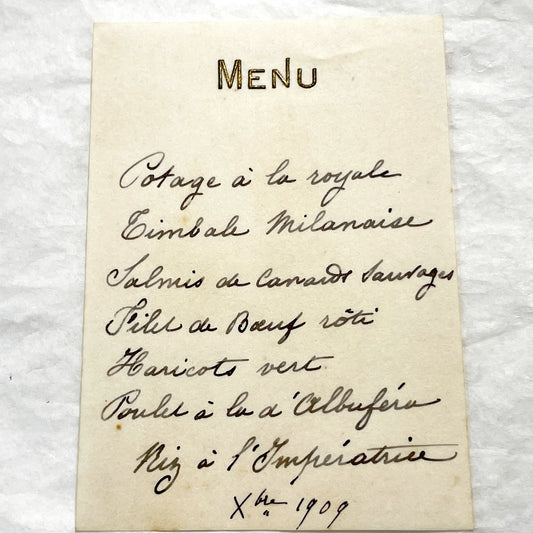 MENU
Potage à la royale
Timbale Milanaise
Salmis de Canards Sauvages
Filet de Bœuf rôti
Haricots vert
Poulet à la d'Albuféra
Riz à l'Impératrice
Xbre 1909